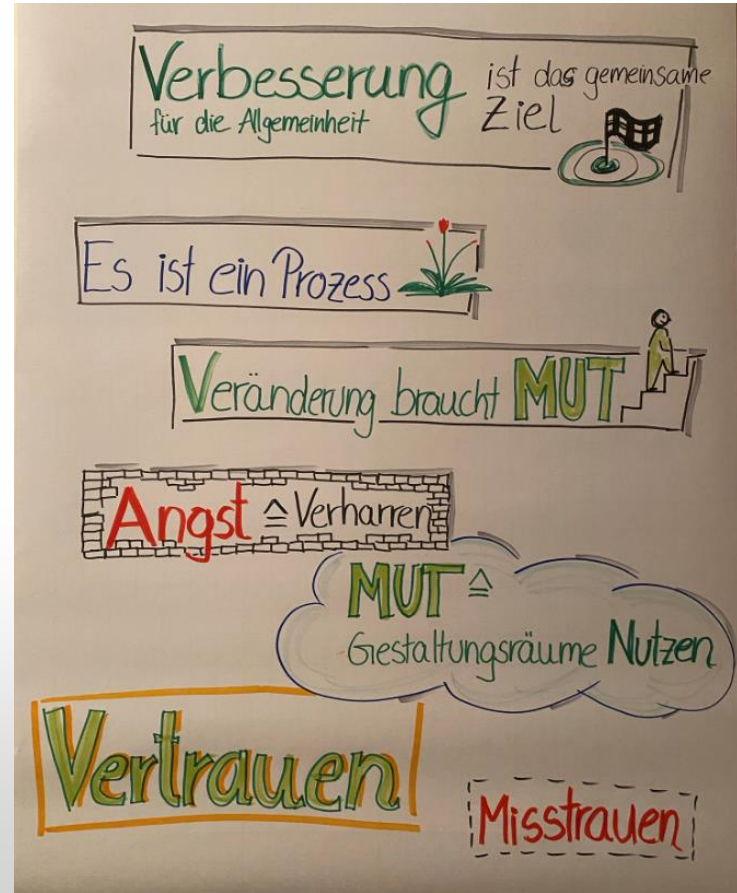 Verbesserung ist das gemeinsame
für die Allgemeinheit Ziel
Es ist ein Prozess
Veränderung braucht MUT
Angst ≙ Verharren
MUT ≙
Gestaltungsräume Nutzen
Vertrauen
Misstrauen